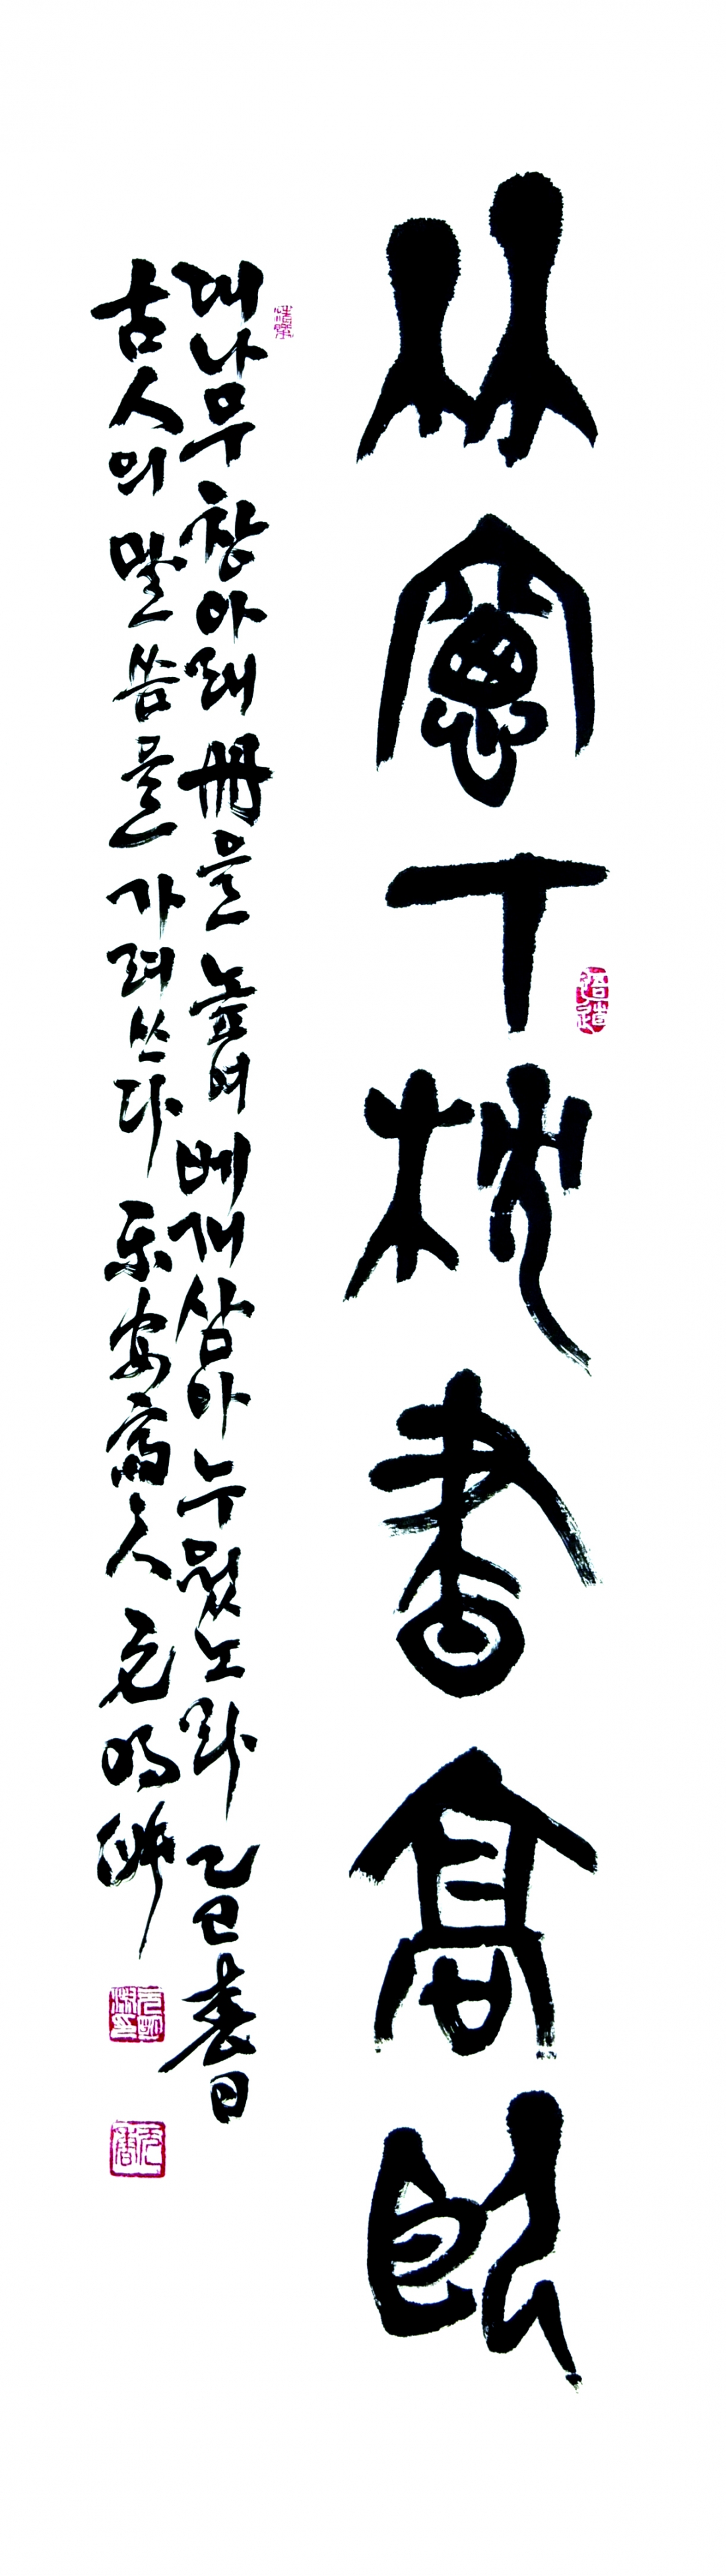 竹窓下枕書高臥
대나무 창 아래 冊을 높여 베개 삼아 누웠노라 乙巳 春日
古人의 말씀을 가려 쓰다